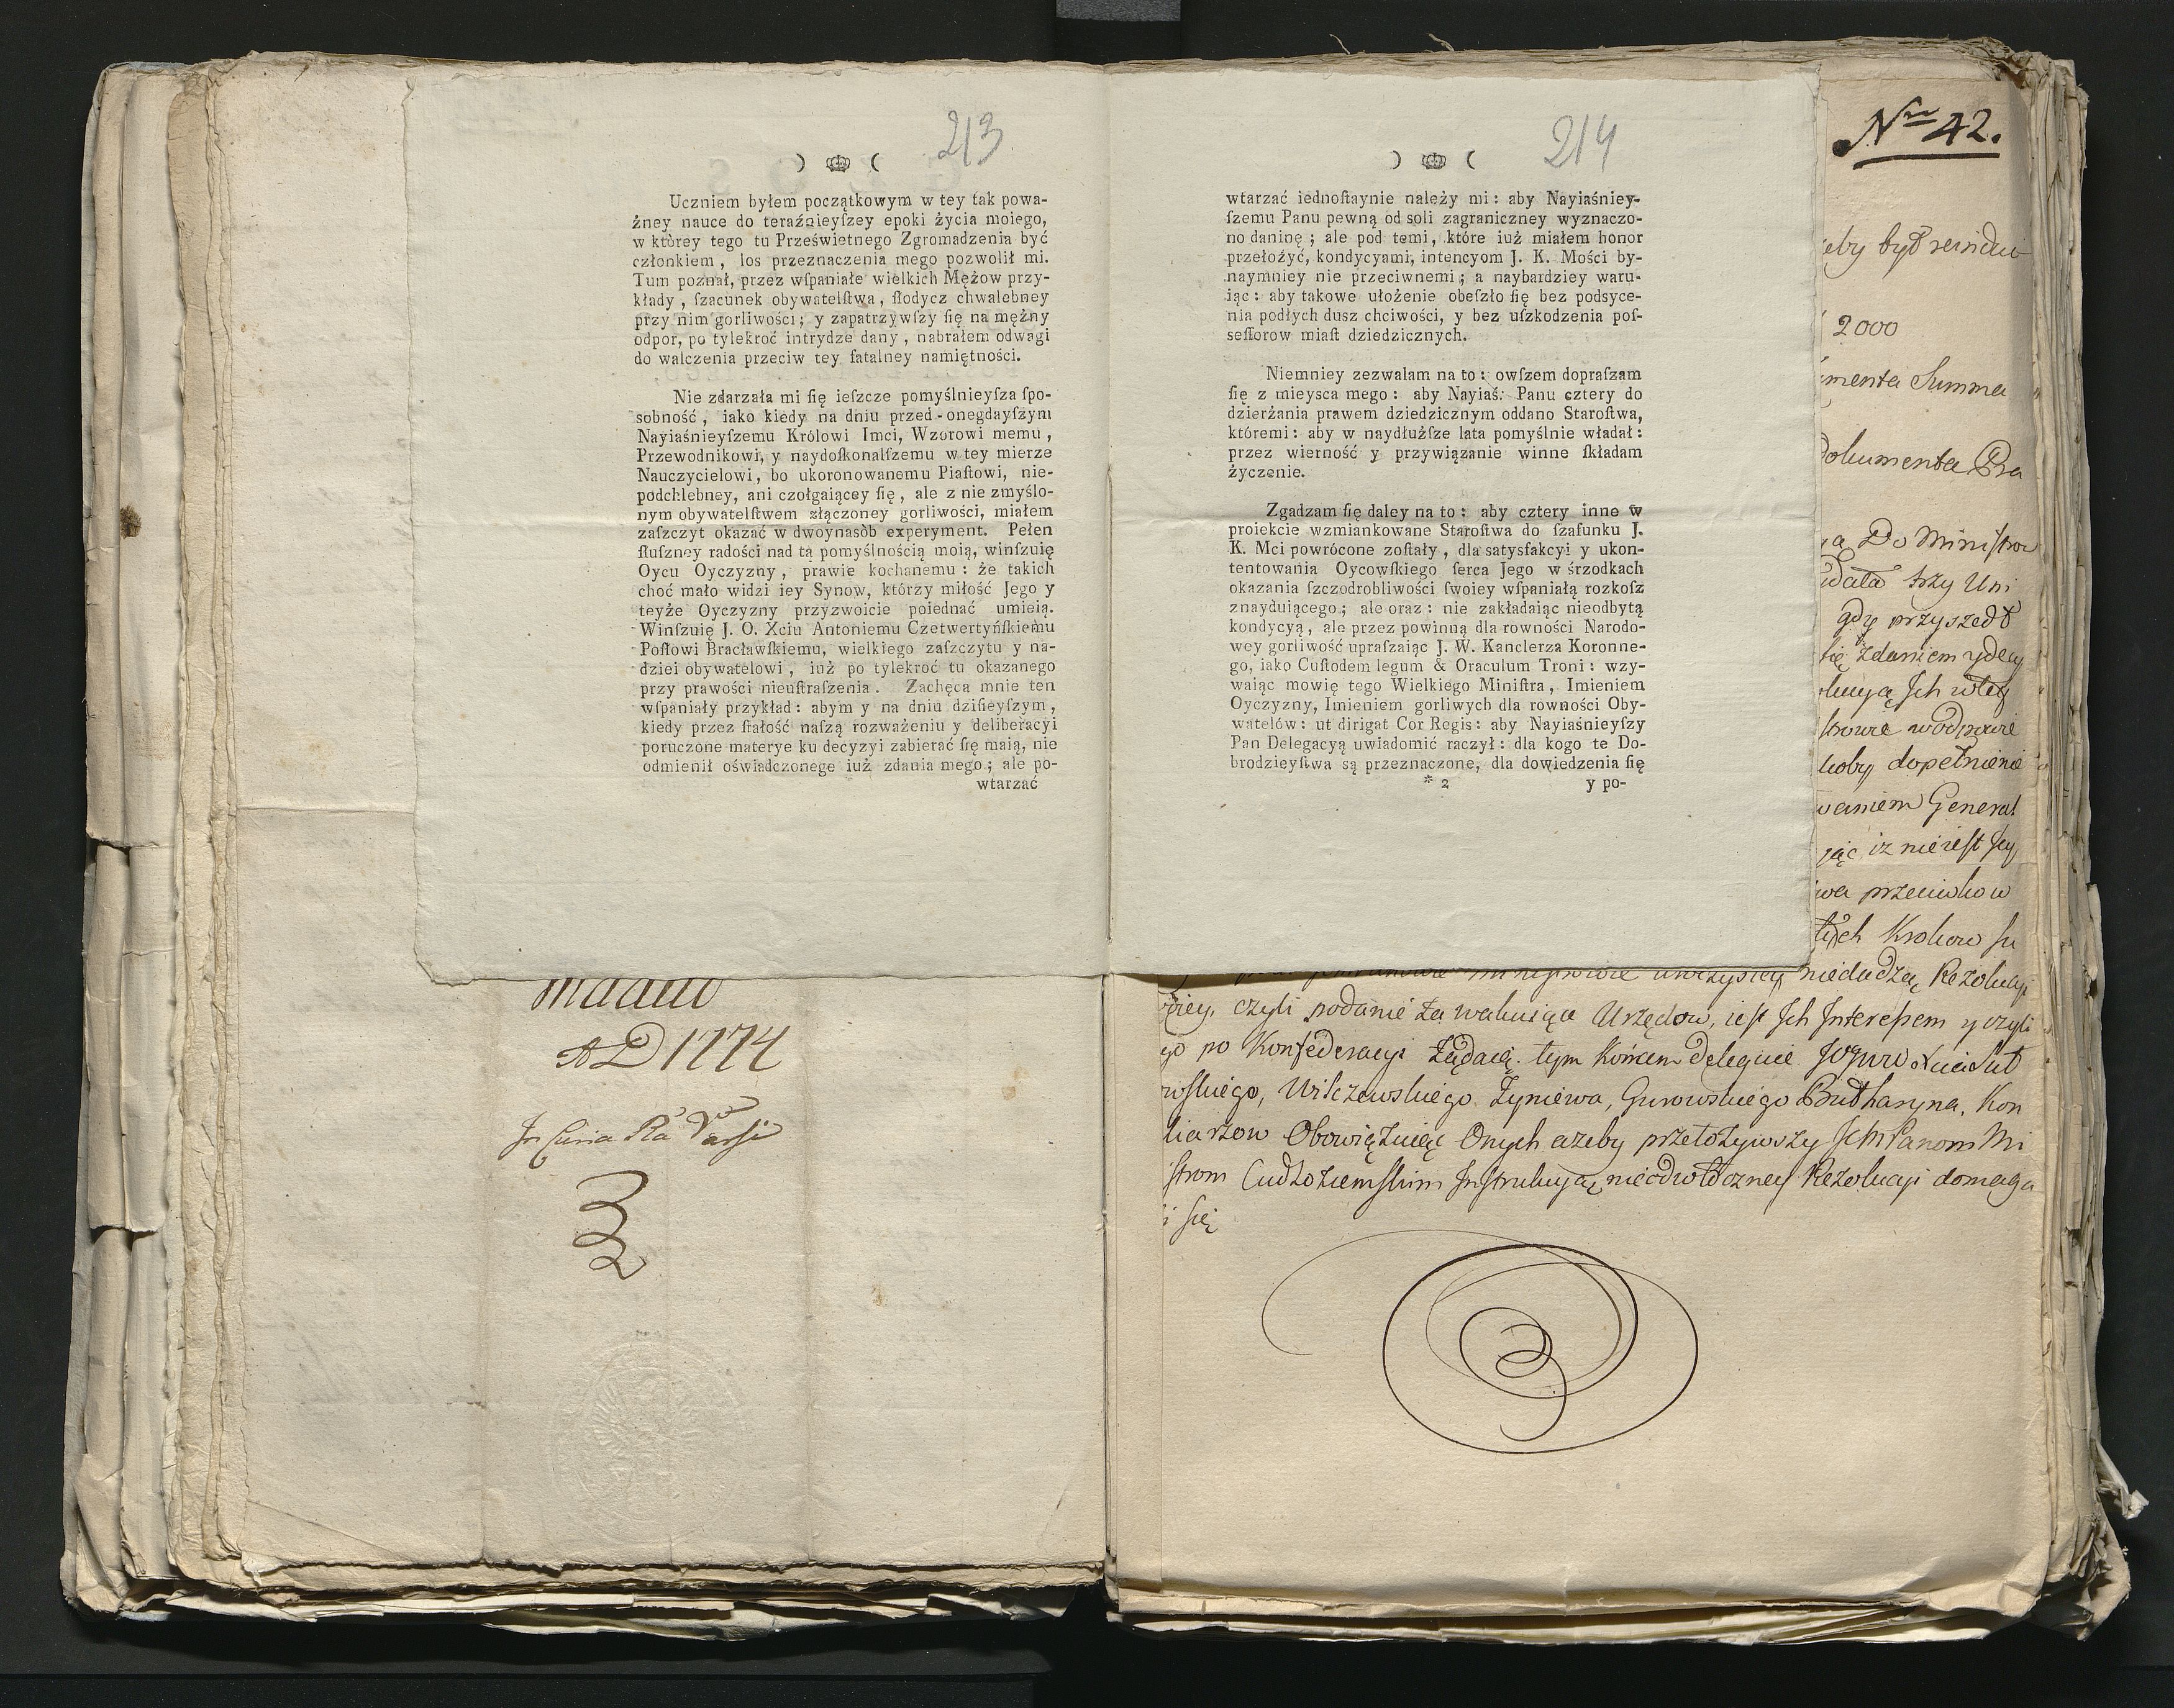 213
) (
Uczniem byłem początkowym w tey tak powa-
żney nauce do teraźnieyſzey epoki życia moiego,
w ktòrey tego tu Prześwietnego Zgromadzenia być
członkiem, los przeznaczenia mego pozwolił mi.
Tum poznał, przez wſpaniałe wielkich Mężow przy-
kłady, ſzacunek obywatelſtwa, ſłodycz chwalebney
przy nim gorliwości; y zapatrzywſzy ſię na mężny
odpor, po tylekroć intrydze dany, nabrałem odwagi
do walczenia przeciw tey fatalney namiętności.
Nie zdarzała mi ſię ieſzcze pomyślnieyſza ſpo-
sobność, iako kiedy na dniu przed-onegdayſzym
Nayiaśnieyſzemu Królowi Imci, Wzorowi memu,
Przewodnikowi, y naydoſkonalſzemu w tey mierze
Nauczycielowi, bo ukoronowanemu Piaſtowi, nie-
podchlebney, ani czołgaiącey ſię, ale z nie zmyślo-
nym obywatelſtwem złączoney gorliwości, miałem
zaſzczyt okazać w dwoynasòb experyment. Pełen
ſłuſzney radości nad tą pomyślnością moią, winſzuię
Oycu Oyczyzny, prawie kochanemu: że takich
choć mało widzi iey Synow, którzy miłość Jego y
teyże Oyczyzny przyzwoicie poiednać umieią.
Winſzuię J. O. Xciu Antoniemu Czetwertyńſkiemu
Poſłowi Bracławſkiemu, wielkiego zaſzczytu y na-
dziei obywatelowi, iuż po tylekroć tu okazanego
przy prawości nieuſtraſzenia. Zachęca mnie ten
wſpaniały przykład: abym y na dniu dziſieyſzym,
kiedy przez ſtałość naſzą rozważeniu y deliberacyi
poruczone materye ku decyzyi zabierać ſię maią, nie
odmienił oświadczonege iuż zdania mego; ale po-
wtarzać
214
) (
wtarzać iednoſtaynie należy mi: aby Nayiaśniey-
ſzemu Panu pewną od soli zagraniczney wyznaczo-
no daninę; ale pod temi, które iuż miałem honor
przełożyć, kondycyami, intencyom J. K. Mości by-
naymniey nie przeciwnemi; a naybardziey waru-
iąc: aby takowe ułożenie obeſzło ſię bez podsyce-
nia podłych dusz chciwości, y bez uſzkodzenia poſ-
seſſorow miaſt dziedzicznych.
Niemniey zezwalam na to: owſzem dopraſzam
ſię z mieysca mego: aby Nayiaś: Panu cztery do
dzierżania prawem dziedzicznym oddano Staroſtwa,
któremi: aby w naydłużſze lata pomyślnie władał:
przez wierność y przywiązanie winne ſkładam
życzenie.
Zgadzam ſię daley na to: aby cztery inne w
proiekcie wzmiankowane Staroſtwa do ſzafunku J.
K. Mci powrócone zoſtały, dla satysfakcyi y ukon-
tentowania Oycowſkiego ſerca Jego w śrzodkach
okazania ſzczodrobliwości ſwoiey wſpaniałą rozkoſz
znayduiącego; ale oraz: nie zakładaiąc nieodbytą
kondycyą, ale przez powinną dla rowności Narodo-
wey gorliwość upraſzaiąc J. W. Kanclerza Koronne-
go, iako Cuſtodem legum & Oraculum Troni: wzy-
waiąc mowię tego Wielkiego Miniſtra, Imieniem
Oyczyzny, Imieniem gorliwych dla rowności Oby-
watelów: ut dirigat Cor Regis: aby Nayiaśnieyſzy
Pan Delegacyą uwiadomić raczył: dla kogo te Do-
brodzieyſtwa są przeznaczone, dla dowiedzenia ſię
* 2 y po-
AD 1774
In Curia
Nro 42.
eby był
2000
menta Summa
Dokumenta
Do Ministrow
trzy Uni
gdy przyszedł
zdaniem
dopełnienie
waniem General
iąc iz nie iest
wa przeciwko w
tych Krokow
niedadzą Rezolucyi
czyli podanie Za Urzędow, iest Ich Interessem y czyli
go po Konfederacyi Żądaią. tym Końcem deleguie
Wilczewskiego Zyniewa, Gurowskiego Bułharyna, Kon
Obowiązuiąc Onych azeby przełożywszy Ichm Panom Mi
strom Cudzoziemskim Instrukcyą nieodwłoczney Rezolucyi domaga
i się